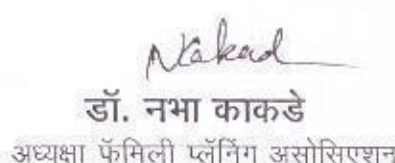 Nakad
डॉ. नभा काकडे
अध्यक्षा फॅमिली प्लॅनिंग असोसिएशन